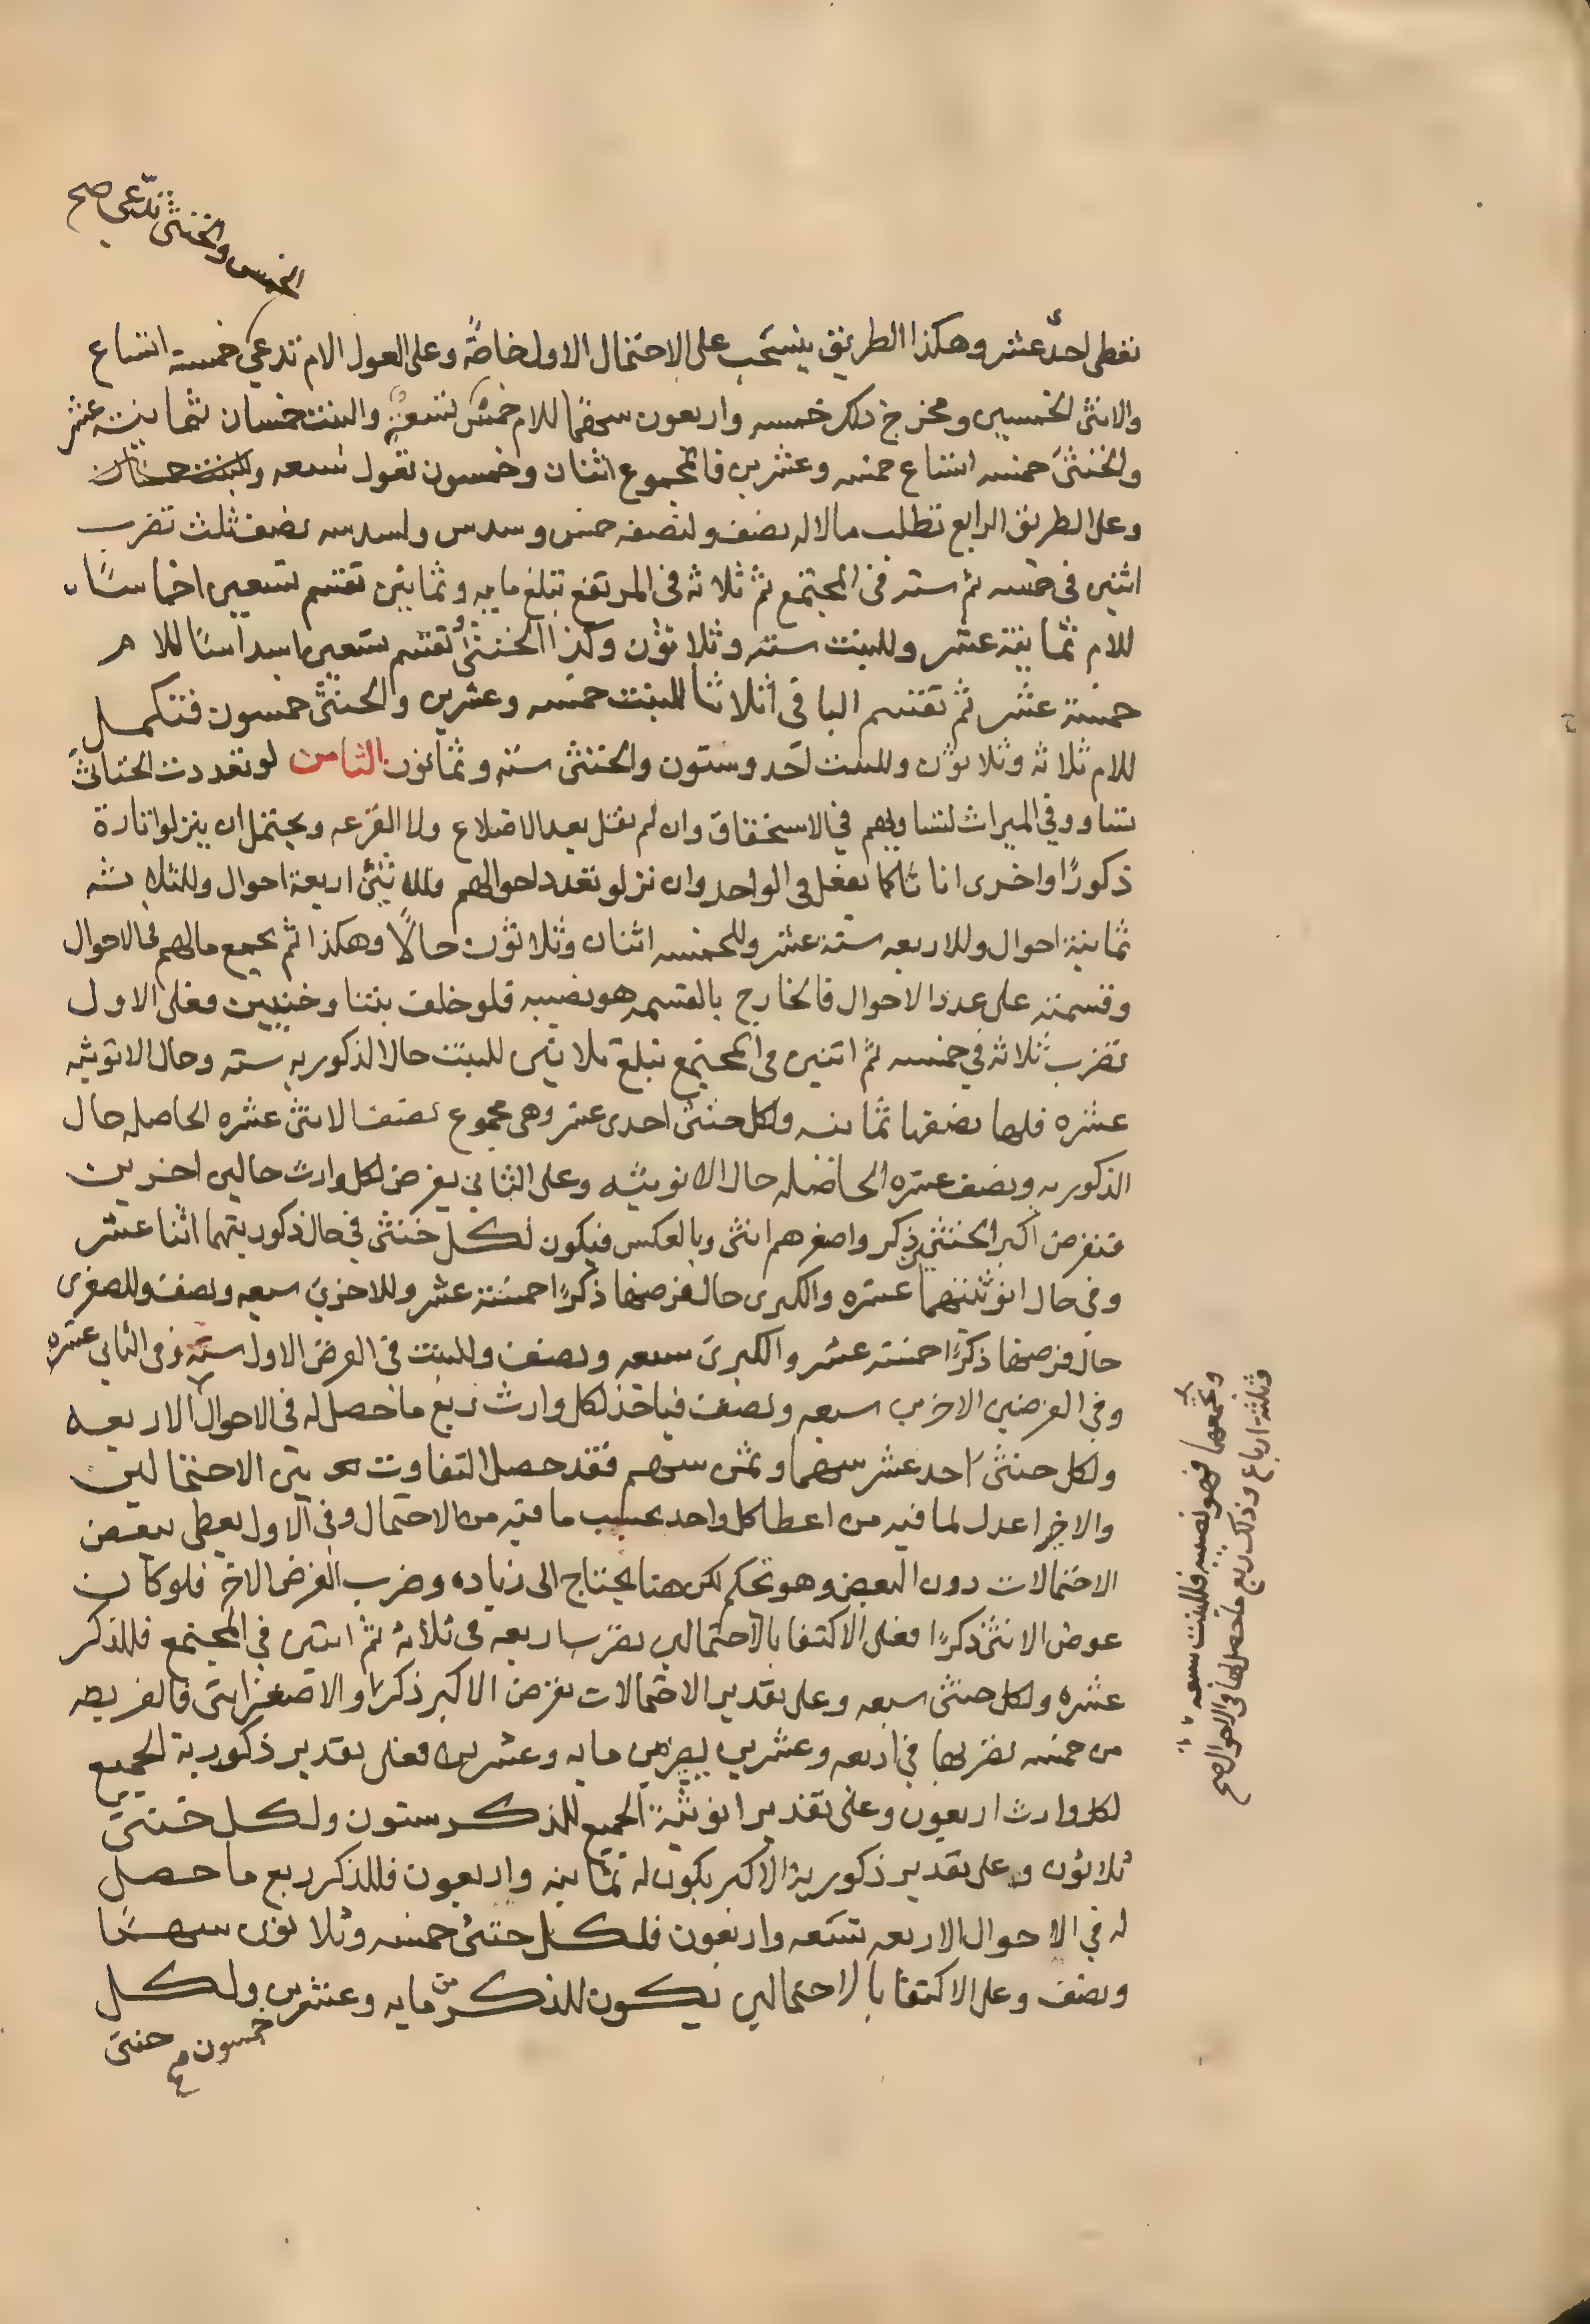 الخمس والخنثى تدّعي صح
تعطى احدى عشر وهكذا الطريق ينسحب على الاحتمال الاول خاصة وعلى العول الام تدعي خمسة اتساع
والانثى الخمسين ومخرج ذلك خمسه واربعون سحقها للام خمس تسعة والبنت خمسان ثمانية عشر
والخنثى خمسه اتساع خمسه وعشرين فالمجموع اثنان وخمسون تقول تسعه
وعلى الطريق الرابع تطلب مالا له نصف ولنصفه خمس وسدس ولسدسه نصف ثلث تضرب
اثنين في خمسه ثم سته في المجتمع ثم ثلاثه في المرتفع تبلغ مايه وثمانين تقسم تسعين اخماسًا
للام ثمانية عشر وللبنت سته وثلاثون وكذا الخنثى وتقسم تسعين اسداسًا للام
خمسة عشر ثم تقسم الباقي اثلاثا للبنت خمسه وعشرين والخنثى خمسون فتكمل
للام ثلاثه وثلاثون وللبنت احد وستون والخنثى سته وثمانون الثامن لو تعددت الخناثى
تساووا في الميراث لتساويهم في الاستحقاق وان لم نقل بعد الاضلاع ولا القرعه ويحتمل ان ينزلوا تارة
ذكورًا واخرى اناثا كما نفعل في الواحد وان نزلو تعدد احوالهم فللاثنين اربعة احوال وللثلاثه
ثمانية احوال وللاربعه ستة عشر وللخمسه اثنان وثلاثون حالًا وهكذا ثم يجمع مالهم في الاحوال
وقسمته على عدد الاحوال فالخارج بالقسمه هو نصيبه فلو خلف بنتا وخنثيين فعلى الاول
تضرب ثلاثه في خمسه ثم اثنين في المجتمع تبلغ ثلاثين للبنت حال الذكوريه سته وحال الانوثيه
عشره فلها نصفها ثمانيه ولكل خنثى احدى عشر وهي مجموع نصف الاثنى عشره الحاصله حال
الذكوريه ونصف عشره الحاصله حال الانوثيه وعلى الثاني يفرض لكل وارث حالين اخرين
فنفرض اكبر الخنثيين ذكر واصغرهم انثى وبالعكس فيكون لكل خنثى في حال ذكوريتهما اثنا عشر
وفي حال انوثيتهما عشره والكبرى حال فرضها ذكرًا خمسة عشر وللاخرى سبعه ونصف وللصغرى
حال فرضها ذكرًا خمسة عشر والكبرى سبعه ونصف وللبنت في الفرض الاول سته وفي الثاني عشره
وفي الفرضين الاخرين سبعه ونصف فياخذ لكل وارث ربع ما حصل له في الاحوال الاربعه
ولكل خنثى احد عشر سهما وثمن سهم فقد حصل التفاوت بين الاحتمالين
والاخر اعدل لما فيه من اعطا كل واحد بحسب ما فيه من الاحتمال وفي الاول يعطى ببعض
الاحتمالات دون البعض وهو تحكم لكن هنا يحتاج الى زياده وضرب الفرض الاخر فلو كان
عوض الانثى ذكرًا فعلى الاكتفا بالاحتمالين تضرب اربعه في ثلاثه ثم اثنين في المجتمع فللذكر
عشره ولكل خنثى سبعه وعلى تقدير الاحتمالات نفرض الاكبر ذكرا والاصغر انثى فالفريضه
من خمسه نضربها في اربعه وعشرين يصير مايه وعشرين فعلى تقدير ذكورية الجميع
لكل وارث اربعون وعلى تقدير انوثية الجميع للذكر ستون ولكل خنثى
ثلاثون وعلى تقدير ذكورية الاكبر يكون له ثمانيه واربعون فللذكر ربع ما حصل
له في الاحوال الاربعه تسعه واربعون فلكل خنثى خمسه وثلاثون سهمًا
ونصف وعلى الاكتفا بالاحتمالين يكون للذكر من مايه وعشرين ولكل
خمسون صح خنثى
ونجمعها فهو نصيبه فللبنت سبعه
وثلثة ارباع وذلك ربع ما حصل لها في الاحوال صح